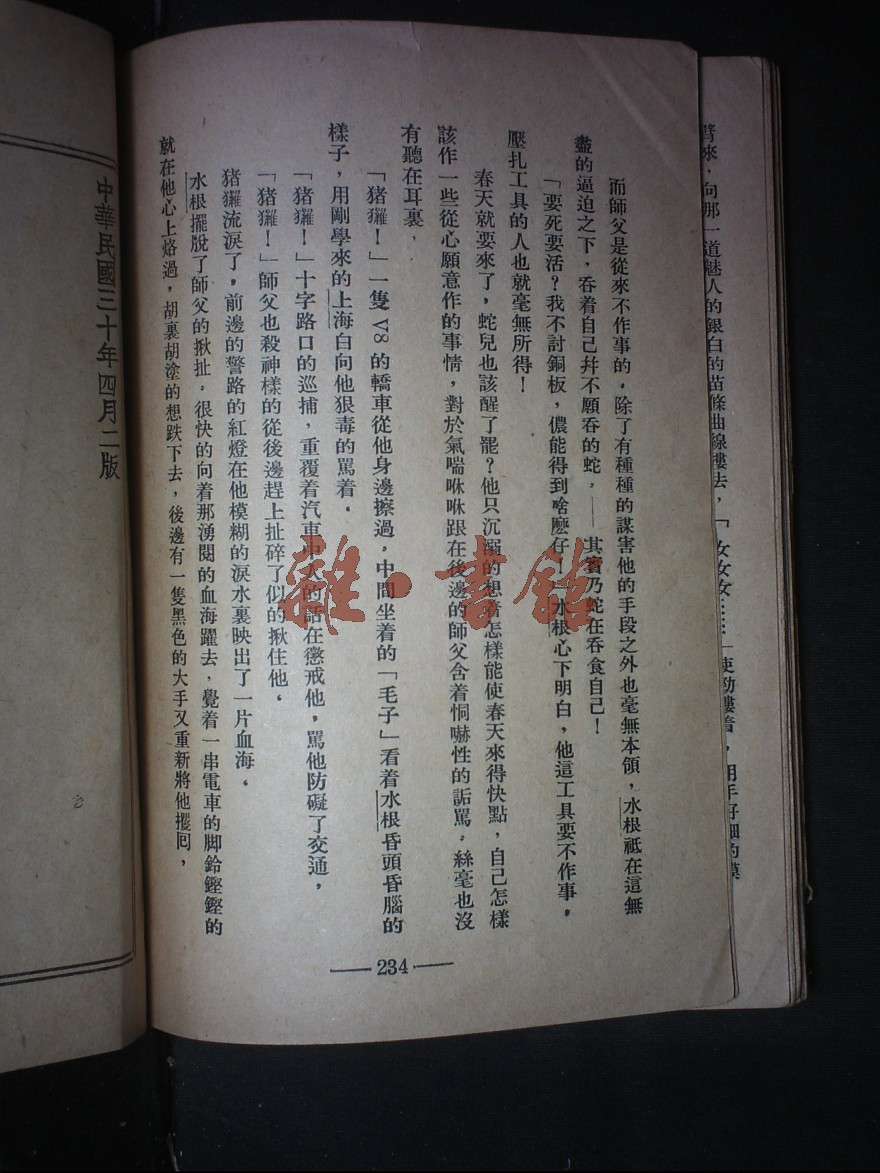 臂來，向那一道魅人的銀白的苗條曲線摟去，「女女女……
而師父是從來不作事的，除了有種種的謀害他的手段之外也毫無本領，水根祗在這無
盡的逼迫之下，吞着自己幷不願吞的蛇，——其實乃蛇在吞食自己！
「要死要活？我不討銅板，儂能得到啥麽仔！」水根心下明白，他這工具要不作事，
壓扎工具的人也就毫無所得！
春天就要來了，蛇兒也該醒了罷？他只沉溺的想着怎樣能使春天來得快點，自己怎樣
該作一些從心願意作的事情，對於氣喘咻咻跟在後邊的師父含着恫嚇性的詬罵，絲毫也沒
有聽在耳裏，
「猪玀！」一隻V8的轎車從他身邊擦過，中間坐着的「毛子」看着水根昏頭昏腦的
樣子，用剛學來的上海白向他狠毒的罵着．
「猪玀！」十字路口的巡捕，重覆着汽車中人的話在懲戒他，罵他防礙了交通，
「猪玀！」師父也殺神樣的從後邊趕上扯碎了似的揪住他．
猪玀流淚了，前邊的警路的紅燈在他模糊的淚水裏映出了一片血海．
水根擺脫了師父的揪扯，很快的向着那湧閱的血海躍去，覺着一串電車的脚鈴鏗鏗的
就在他心上烙過，胡裏胡塗的想跌下去，後邊有一隻黑色的大手又重新將他攫囘，
234
中華民國三十年四月二版
雜·書館